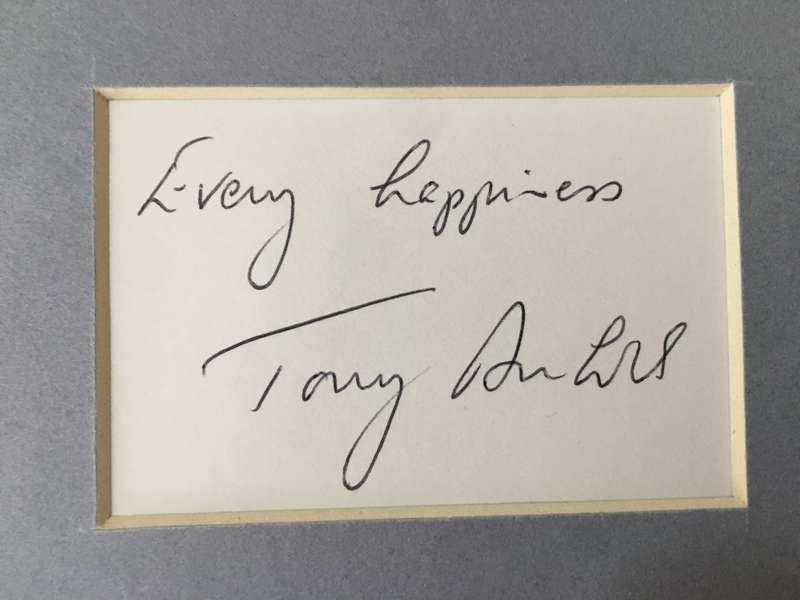 Every happiness
Tony